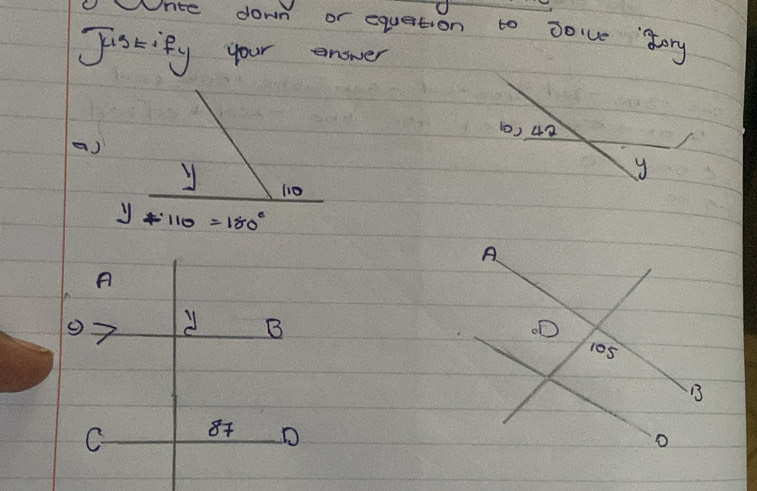 Write down or equation to solve fory
Justify your answer
a)
y
110
y + 110 = 180°
b) 42
y
A
y
B
C
87
D
A
D
105
B
D